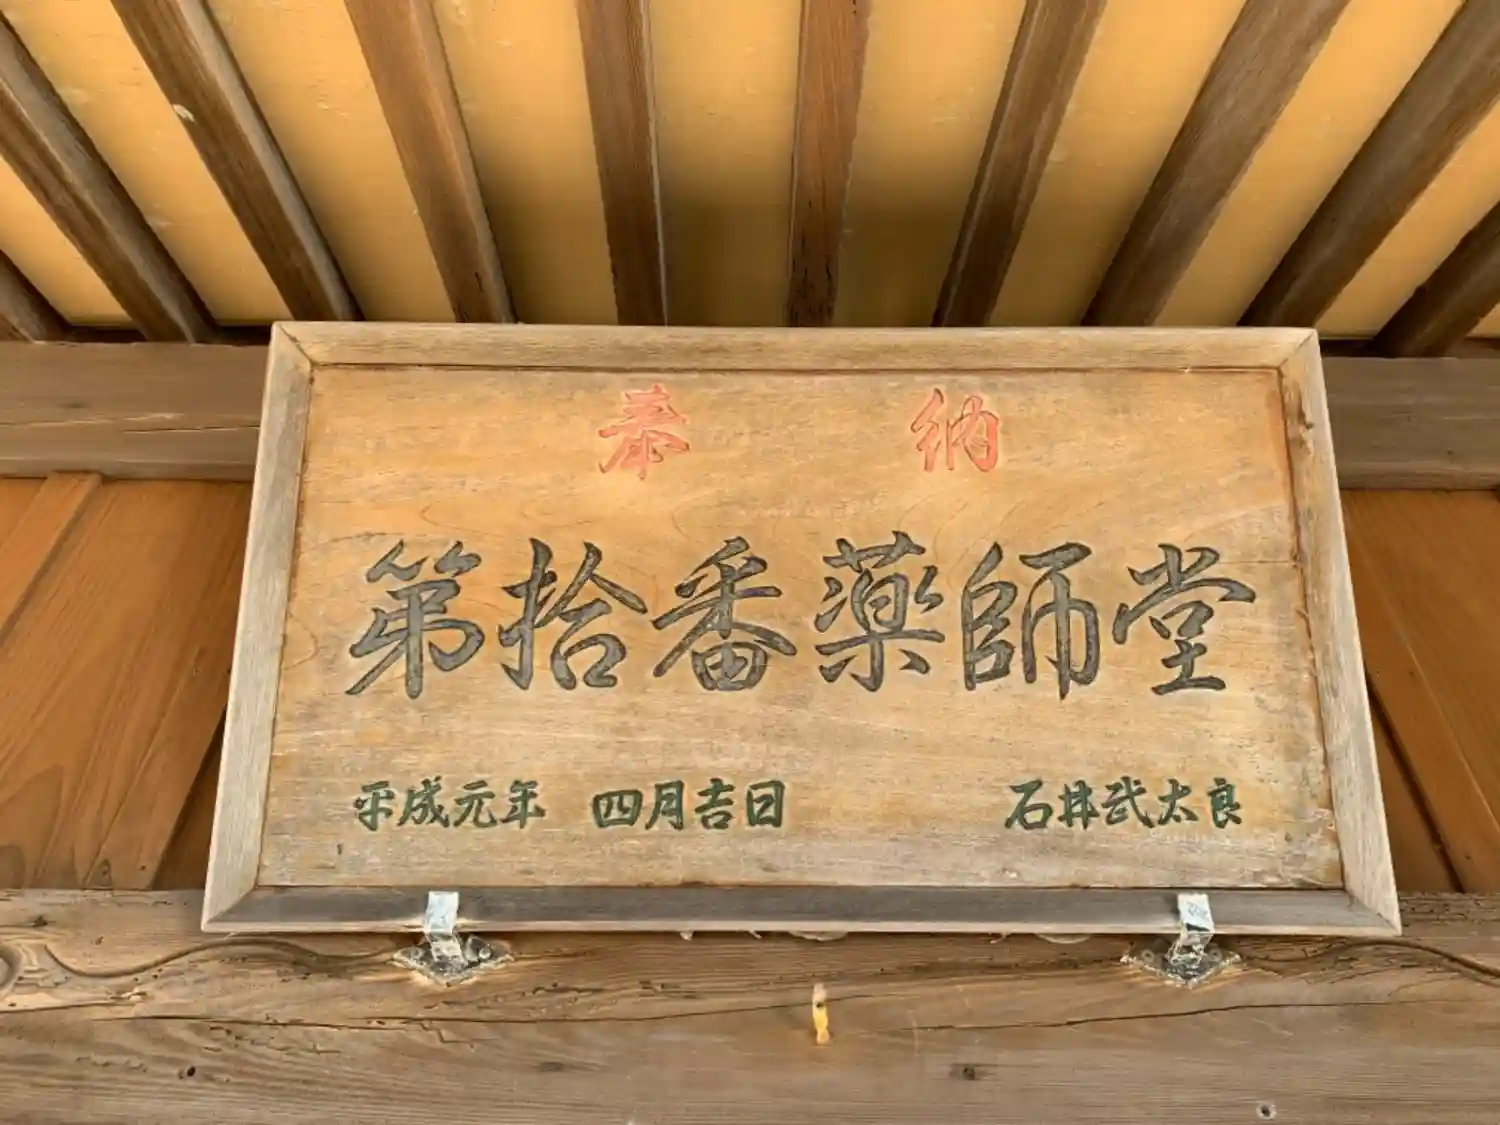 奉納
第拾番薬師堂
平成元年 四月吉日 石井武太良